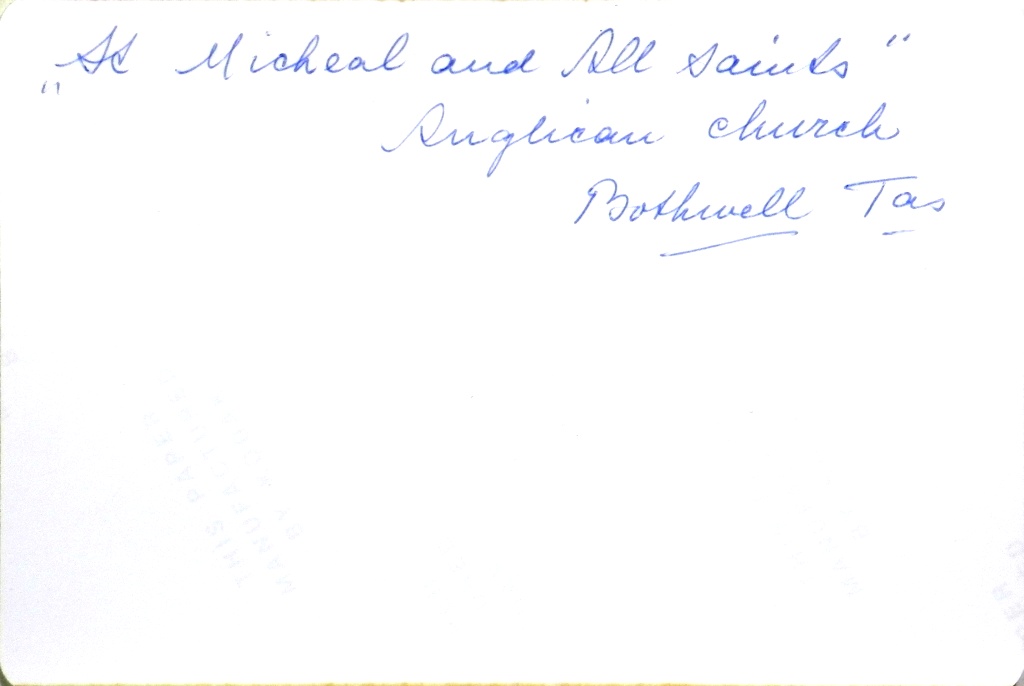 „St Micheal and All saints“
Anglican church
Bothwell Tas
THIS PAPER
MANUFACTURED
BY KODAK